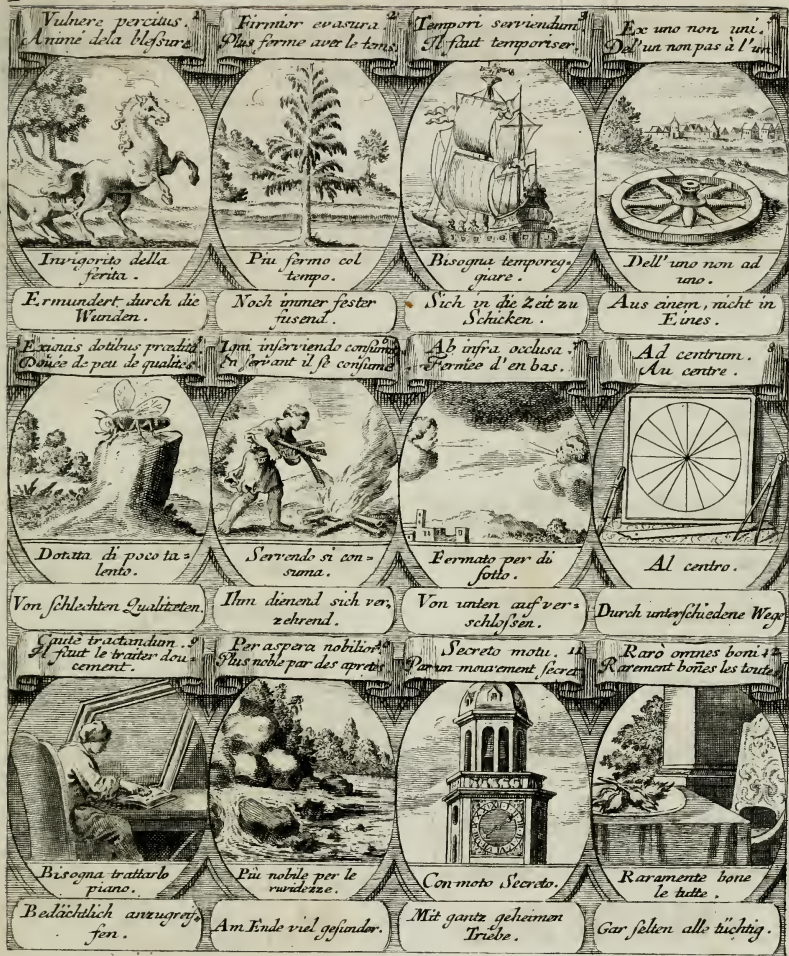 Vulnere percitus. 1
Animé dela blessure
Invigorito della
ferita.
Ermundert durch die
Wunden.
Firmior evasura 2
Plus ferme avec le tems.
Piu fermo col
tempo.
Noch immer fester
fusend.
Tempori serviendum. 3
Il faut temporiser.
Bisogna temporeg=
giare.
Sich in die Zeit zu
Schicken.
Ex uno non uni.
Del'un non pas à l'un
Dell' uno non ad
uno.
Aus einem, nicht in
Eines.
Exiguis dotibus prædita
Douée de peu de qualites
Dotata di poco ta=
lento.
Von schlechten Qualitæten.
Igni inserviendo consumor 6
En servant il se consume
Servendo si con=
suma.
Ihm dienend sich ver,
zehrend.
Ab infra occlusa. 7
Fermée d'en bas.
Fermato per di
sotto.
Von unten auf ver=
schlossen.
Ad centrum. 8
Au centre.
Al centro.
Durch unterschiedene Wege
Cautè tractandum. 9
Il faut le traiter dou=
cement.
Bisogna trattarlo
piano.
Bedächtlich anzugreif=
fen.
Per aspera nobilior. 10
Plus noble par des apretés
Più nobile per le
ruvidezze.
Am Ende viel gesunder.
Secreto motu. 11
Par un mouvement secret
Con moto Secreto.
Mit gantz geheimen
Triebe.
Rarò omnes boni 12
Rarement bones les toute
Raramente bone
le tutte.
Gar selten alle tüchtig.